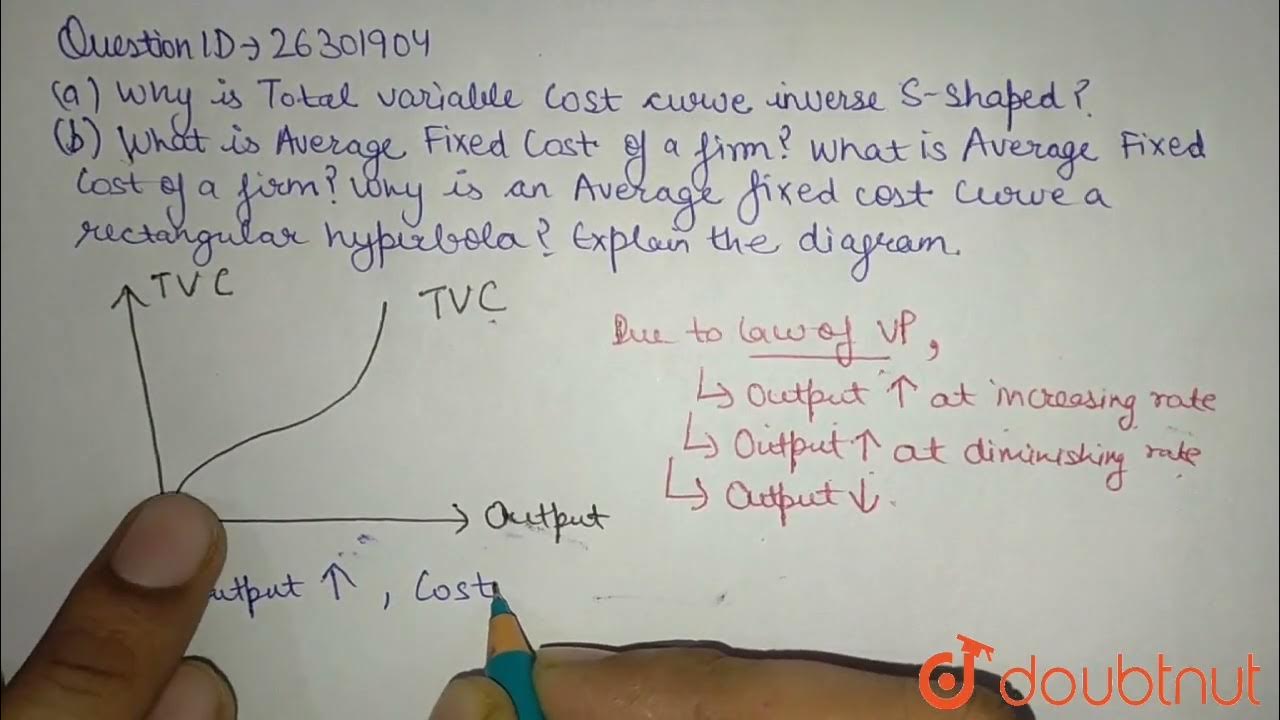 Question ID → 26301904
(a) Why is Total variable Cost curve inverse S-shaped?
(b) What is Average Fixed Cost of a firm? What is Average Fixed
Cost of a firm? Why is an Average fixed cost Curve a
rectangular hyperbola? Explain the diagram.
TVC
TVC
Due to law of VP,
↳ Output ↑ at increasing rate
↳ Output ↑ at diminishing rate
↳ Output ↓.
Output
utput ↑, Cost
doubtnut